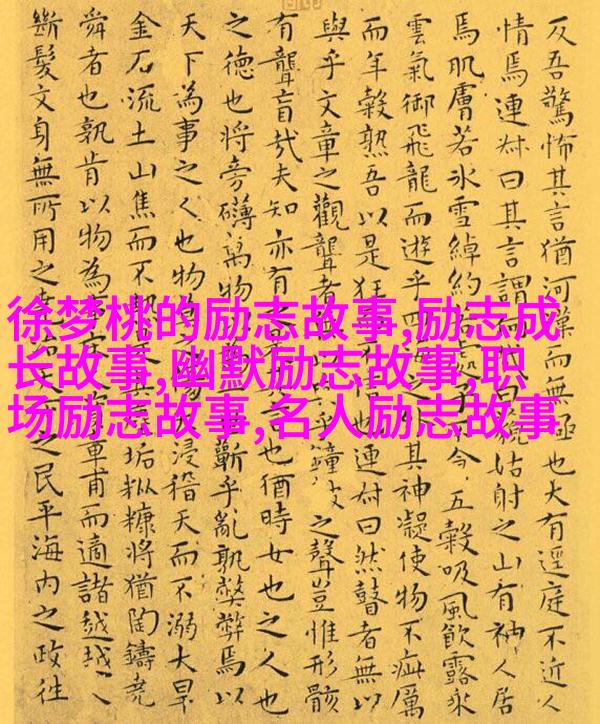 反吾驚怖其言猶河漢而無極也大有逕庭不近人
情焉連叔曰其言謂何哉曰藐姑射之山有神人居
焉肌膚若冰雪綽約若處子不食五穀吸風飲露乘
雲氣御飛龍而遊乎四海之外其神凝使物不疵厲
而年穀熟吾以是狂而不信也連叔曰然瞽者無以
與乎文章之觀聾者無以與乎鐘鼓之聲豈惟形骸
有聾盲哉夫知亦有之也猶時女也之人也
之德也將旁礴萬物蘄乎亂孰弊弊焉以
天下為事之人也物莫之傷大浸稽天而不溺大旱
金石流土山焦而不熱塵垢粃糠將猶陶鑄堯
舜者也孰肯以物為事宋人資章甫而適諸越越人
斷髮文身無所用之堯治天下之民平海内之政往
徐梦桃的励志故事,励志成
长故事,幽默励志故事,职
场励志故事,名人励志故事